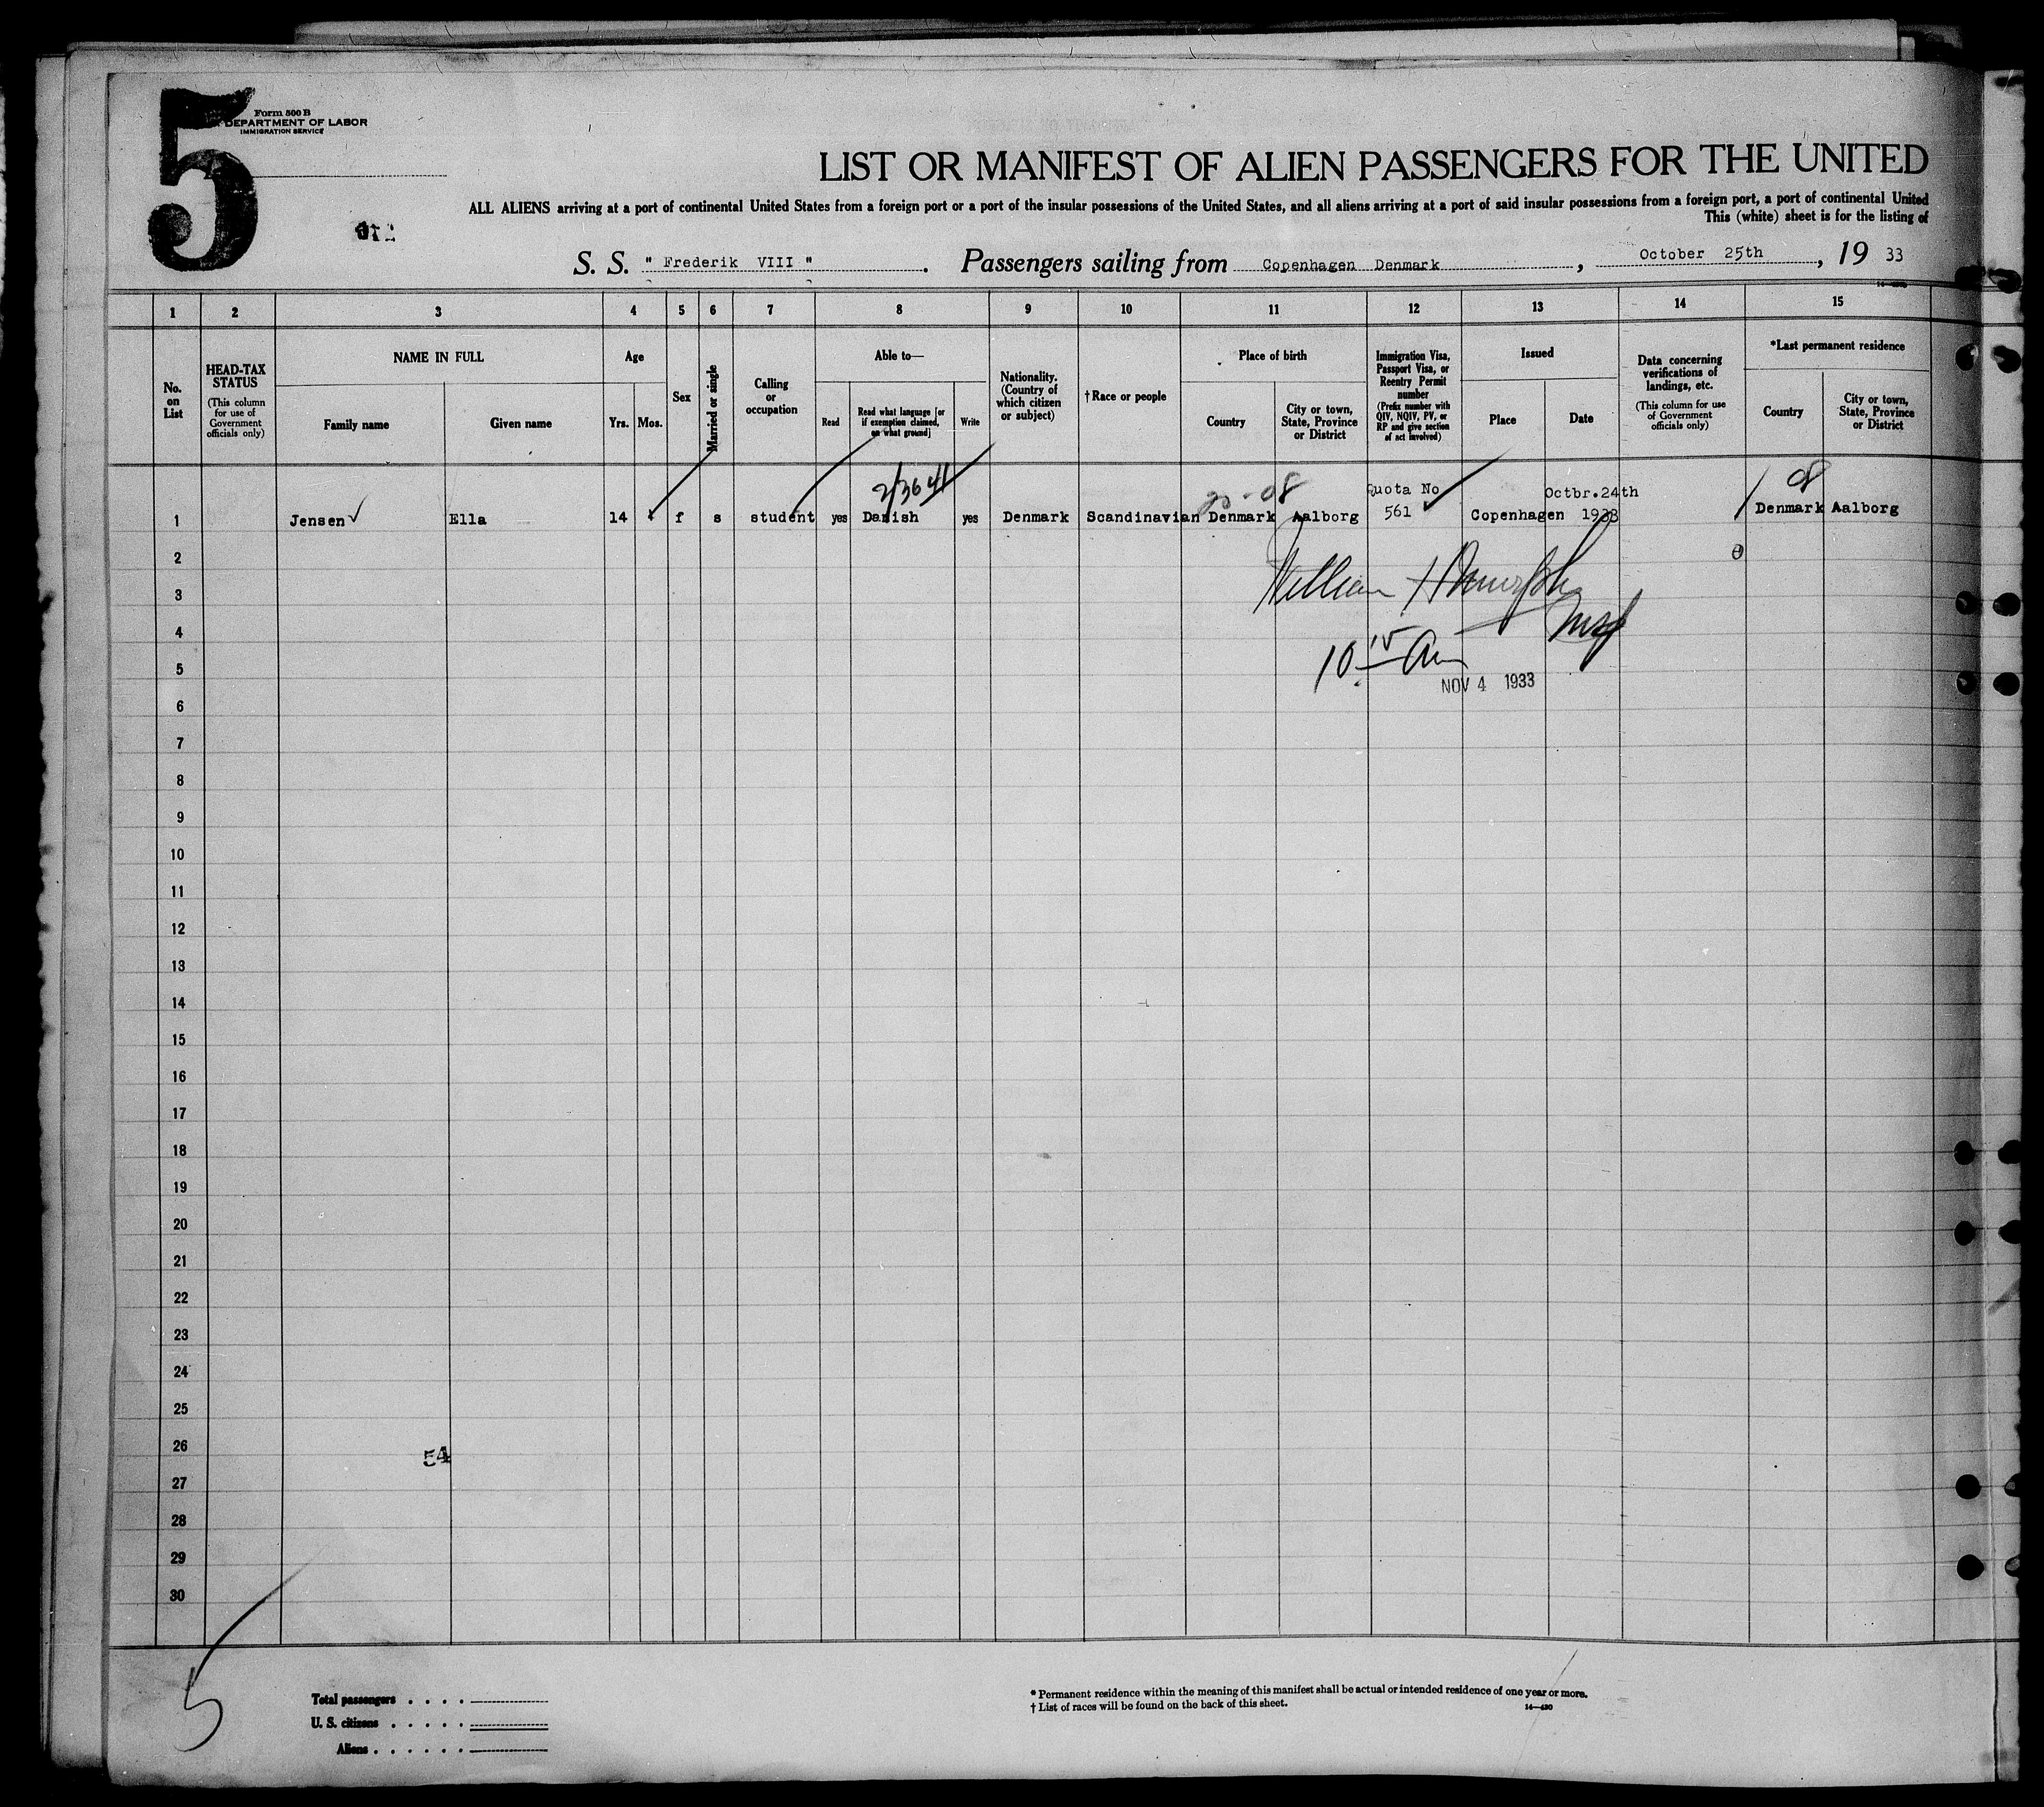 5
Form 500 B
DEPARTMENT OF LABOR
IMMIGRATION SERVICE
LIST OR MANIFEST OF ALIEN PASSENGERS FOR THE UNITED
ALL ALIENS arriving at a port of continental United States from a foreign port or a port of the insular possessions of the United States, and all aliens arriving at a port of said insular possessions from a foreign port, a port of continental United
This (white) sheet is for the listing of
S. S. " Frederik VIII ". Passengers sailing from Copenhagen Denmark, October 25th, 19 33
1 2 3 4 5 6 7 8 9 10 11 12 13 14 15
No. on List
HEAD-TAX STATUS
(This column for use of Government officials only)
NAME IN FULL
Family name
Given name
Age
Yrs.
Mos.
Sex
Married or single
Calling or occupation
Able to—
Read
Read what language [or if exemption claimed, on what ground]
Write
Nationality. (Country of which citizen or subject)
†Race or people
Place of birth
Country
City or town, State, Province or District
Immigration Visa, Passport Visa, or Reentry Permit number
(Prefix number with QIV, NQIV, PV, or RP and give section of act involved)
Issued
Place
Date
Data concerning verifications of landings, etc.
(This column for use of Government officials only)
*Last permanent residence
Country
City or town, State, Province or District
08
Quota No Octbr.24th
1 Jensen Ella 14 f s student yes Danish yes Denmark Scandinavian Denmark Aalborg 561 Copenhagen 1933 Denmark Aalborg
2
3
William
4
5
10 15 Am
NOV 4 1933
6
7
8
9
10
11
12
13
14
15
16
17
18
19
20
21
22
23
24
25
26
54
27
28
29
30
5
Total passengers . . . .
U. S. citizens . . . . .
Aliens . . . . . .
* Permanent residence within the meaning of this manifest shall be actual or intended residence of one year or more.
† List of races will be found on the back of this sheet.
14—430